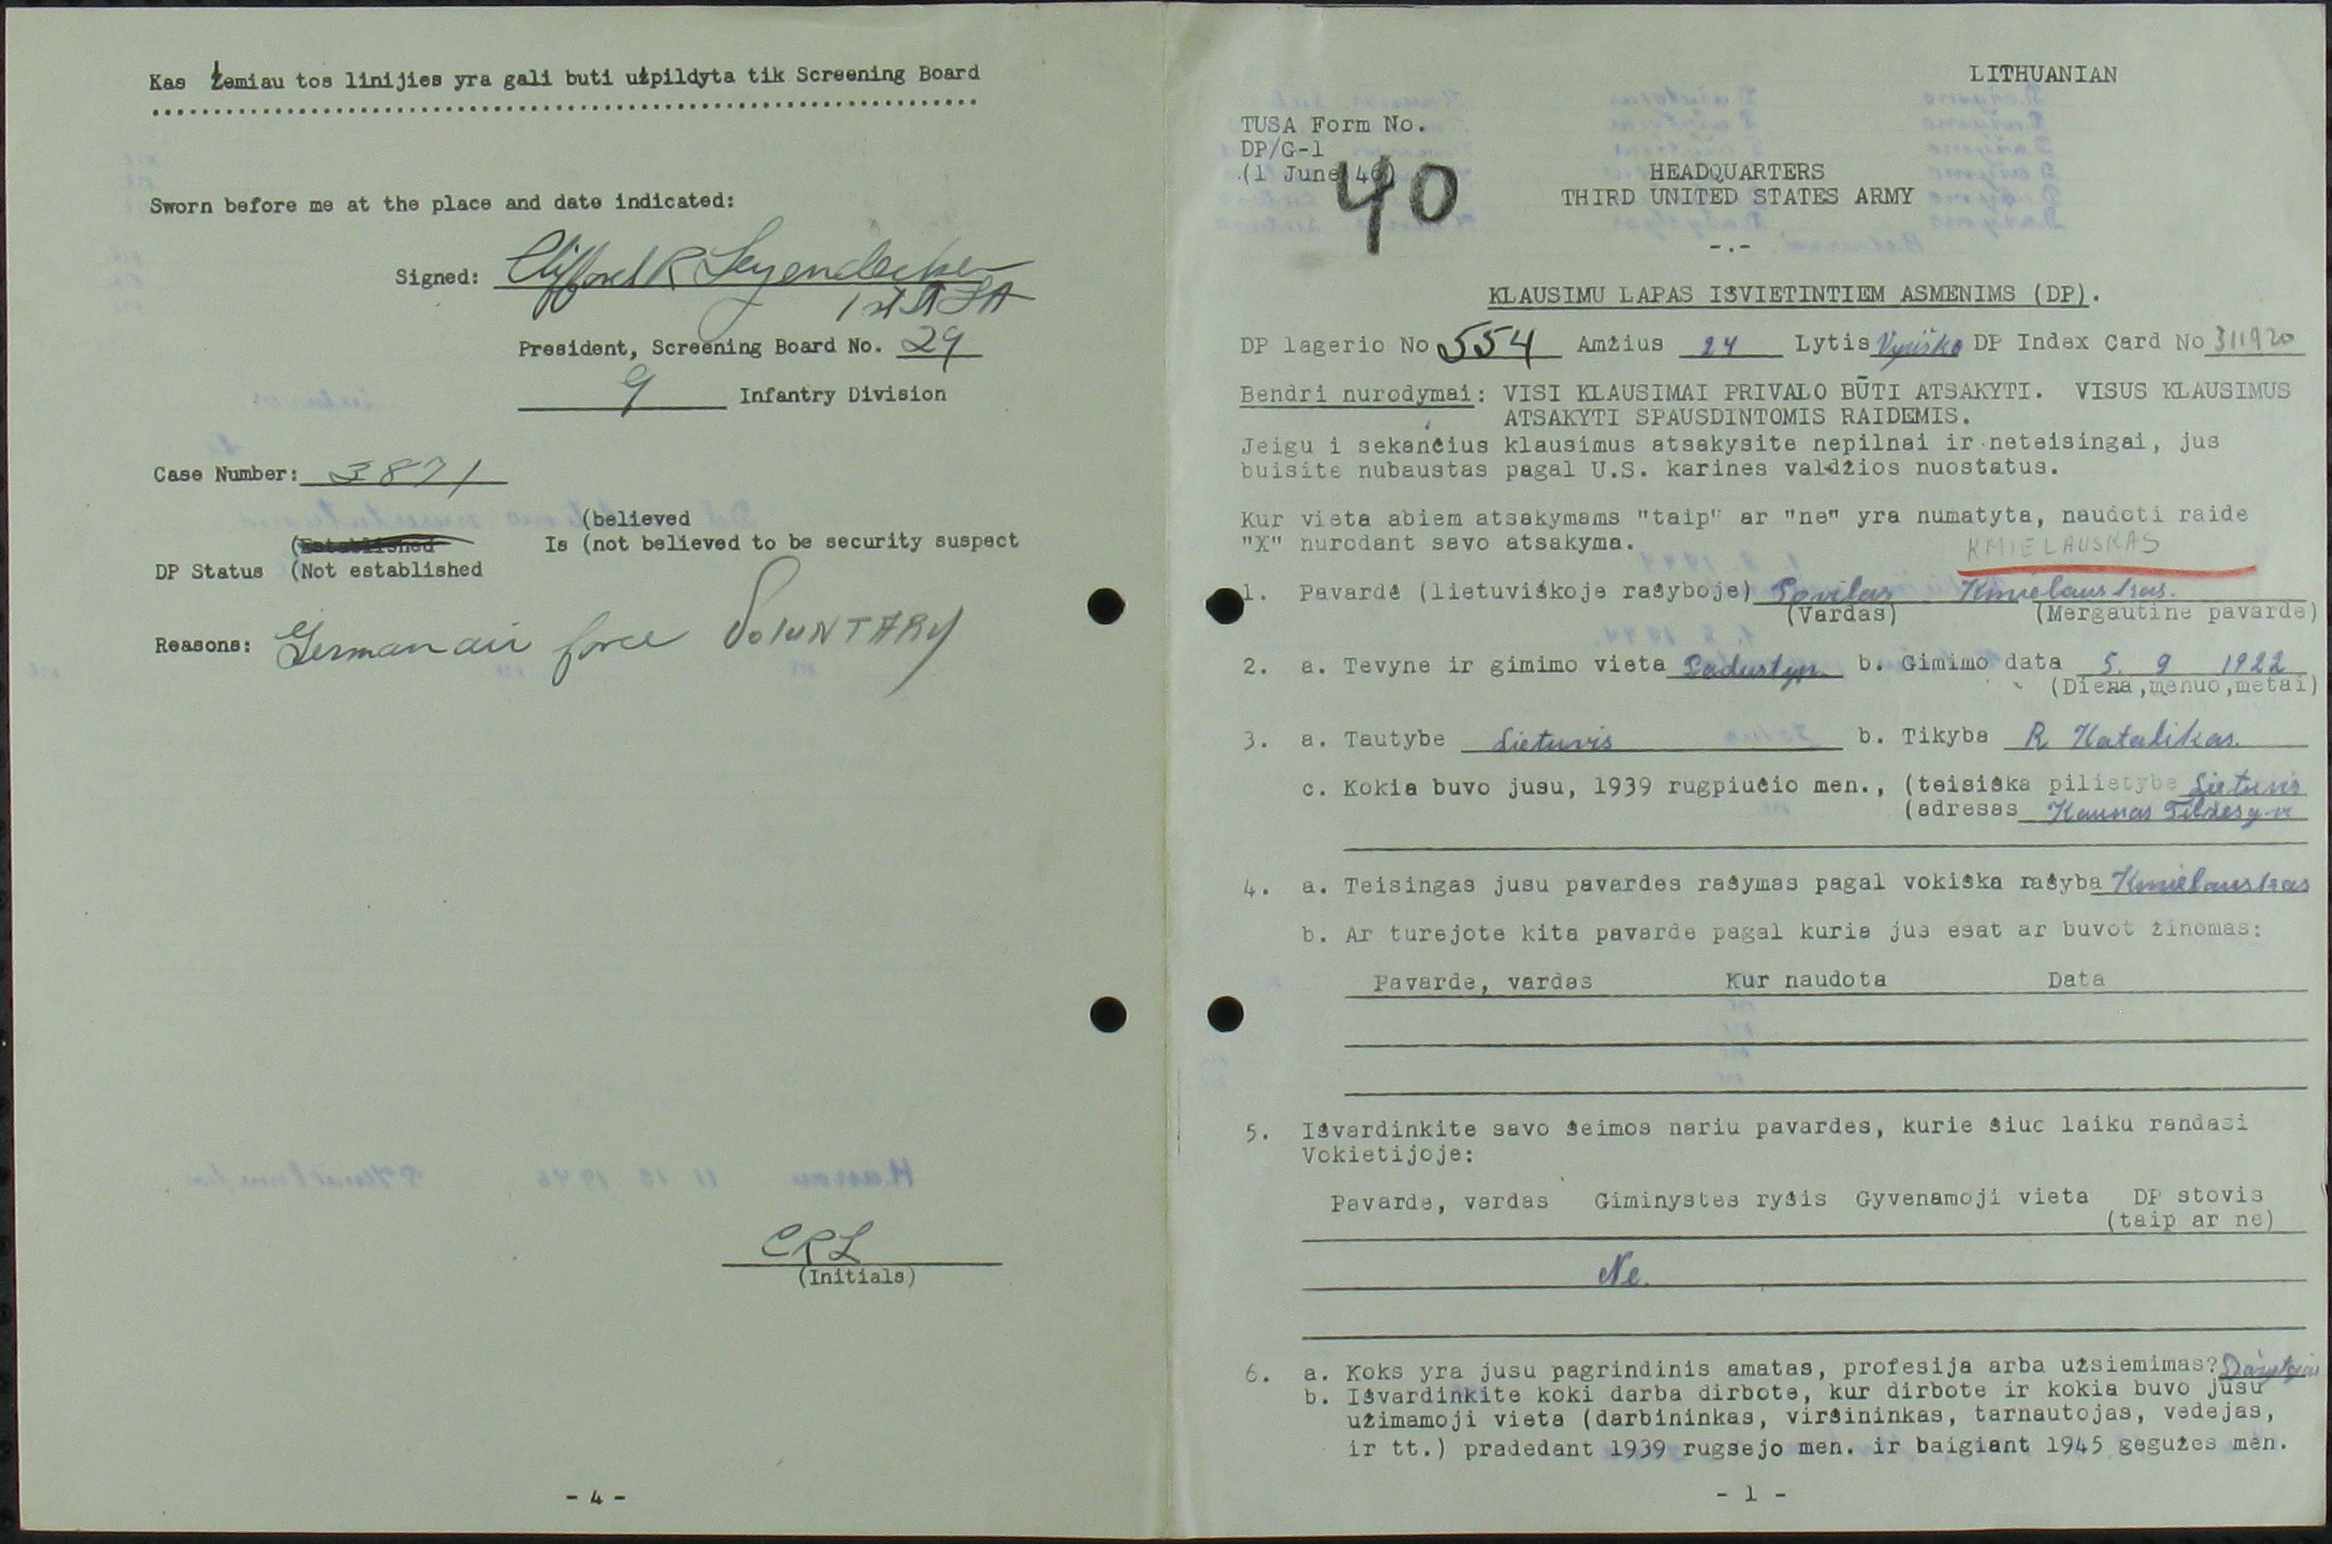 Kas žemiau tos linijies yra gali buti užpildyta tik Screening Board
Sworn before me at the place and date indicated:
Signed: Clifford R Leyendecker
1st Lt FA
President, Screening Board No. 29
9 Infantry Division
Case Number: 3871
(believed
(Established Is (not believed to be security suspect
DP Status (Not established
Reasons: German air force VOLUNTARY
CRL
(Initials)
- 4 -
LITHUANIAN
TUSA Form No.
DP/G-1
(1 June 46)
40
HEADQUARTERS
THIRD UNITED STATES ARMY
-.-
KLAUSIMU LAPAS IŠVIETINTIEM ASMENIMS (DP).
DP lagerio No 554 Amžius 24 Lytis Vyriška DP Index Card No 311920
Bendri nurodymai: VISI KLAUSIMAI PRIVALO BŪTI ATSAKYTI. VISUS KLAUSIMUS
ATSAKYTI SPAUSDINTOMIS RAIDEMIS.
Jeigu i sekančius klausimus atsakysite nepilnai ir neteisingai, jus
buisite nubaustas pagal U.S. karines valdžios nuostatus.
Kur vieta abiem atsakymams "taip" ar "ne" yra numatyta, naudoti raide
"X" nurodant savo atsakyma.
KMIELAUSKAS
1. Pavardė (lietuviškoje rašyboje) Povilas Kmielauskas.
(Vardas) (Mergautine pavarde)
2. a. Tevyne ir gimimo vieta b. Gimimo data 5. 9 1922
(Diena,menuo,metai)
3. a. Tautybe Lietuvis b. Tikyba R Katalikas.
c. Kokia buvo jusu, 1939 rugpiučio men., (teisiška pilietybe Lietuvis
(adresas Kaunas
4. a. Teisingas jusu pavardes rašymas pagal vokiška rašyba Kmielauskas
b. Ar turejote kita pavarde pagal kuria jus esat ar buvot žinomas:
Pavarde, vardas Kur naudota Data
5. Išvardinkite savo šeimos nariu pavardes, kurie šiuc laiku randasi
Vokietijoje:
Pavarde, vardas Giminystes ryšis Gyvenamoji vieta DP stovis
(taip ar ne)
Ne.
6. a. Koks yra jusu pagrindinis amatas, profesija arba užsiemimas?
b. Išvardinkite koki darba dirbote, kur dirbote ir kokia buvo jusu
užimamoji vieta (darbininkas, viršininkas, tarnautojas, vedejas,
ir tt.) pradedant 1939 rugsejo men. ir baigiant 1945 gegužes men.
- 1 -